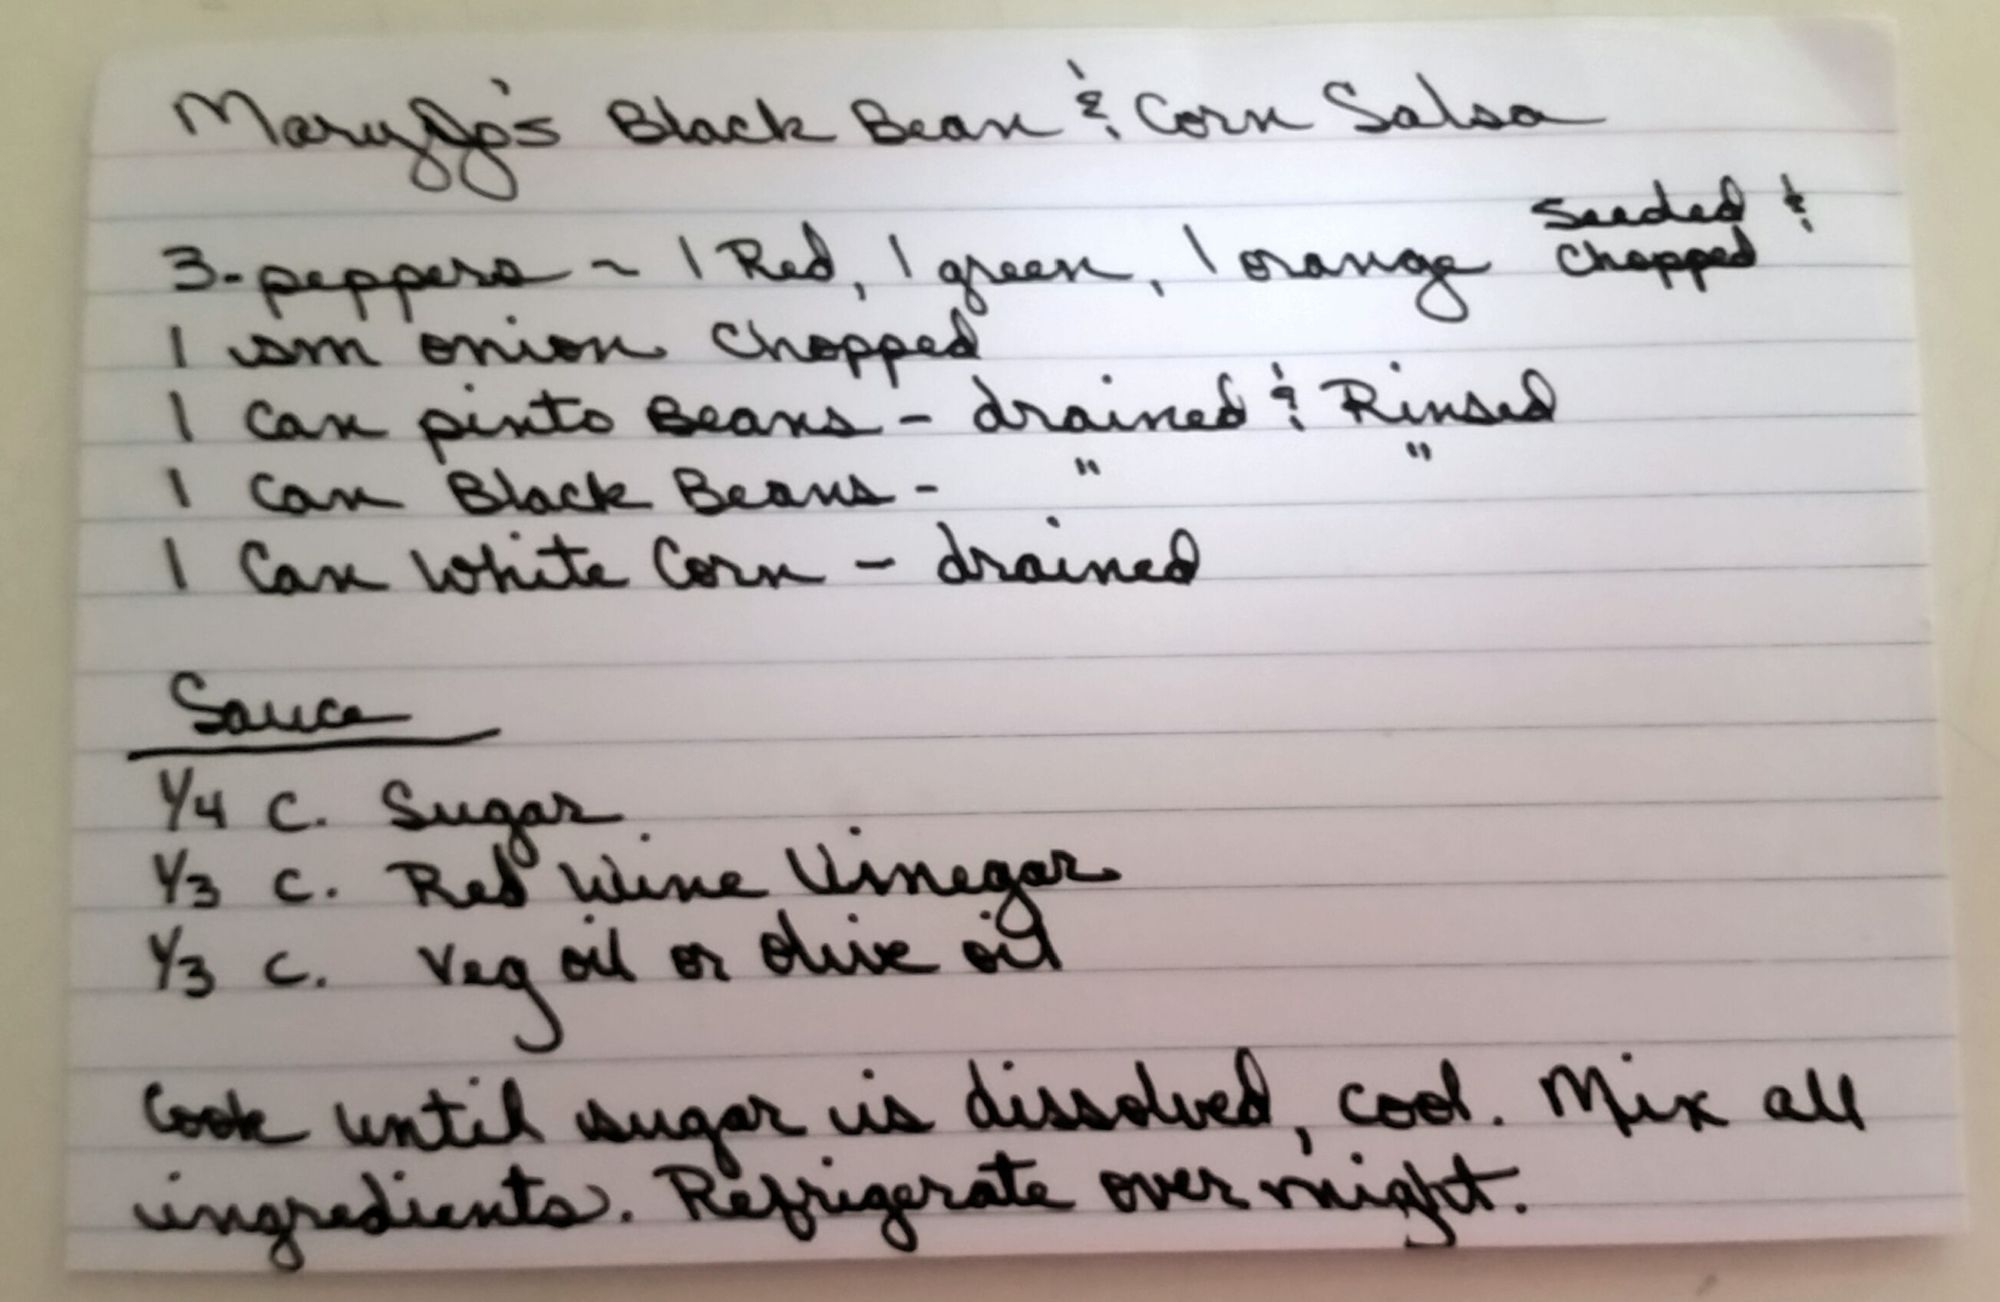 MaryJo's Black Bean & Corn Salsa
3-peppers ~ 1 Red, 1 green, 1 orange Seeded & Chopped
1 sm onion chopped
1 can pinto Beans - drained & Rinsed
1 can Black Beans - " "
1 Can White Corn - drained
Sauce
1/4 c. Sugar
1/3 c. Red Wine Vinegar
1/3 c. Veg oil or olive oil
Cook until sugar is dissolved, cool. Mix all
ingredients. Refrigerate over night.